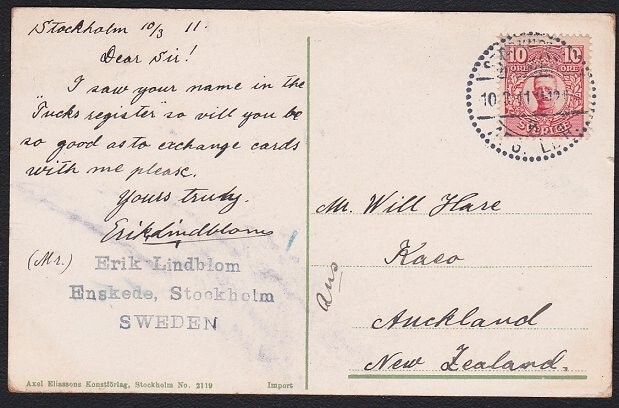 Stockholm 10/3 11.
Dear Sir!
I saw your name in the
"Tucks register" so vill you be
so good as to exchange cards
with me please.
Yours truly.
Erik Lindblom
(Mr.)
Erik Lindblom
Enskede, Stockholm
SWEDEN
Axel Eliassons Konstförlag, Stockholm No. 2119
Import
10 10
ÖRE ÖRE
SVERIGE
10.3.11
Mr. Will Hare
Kaeo
Auckland
New Zealand.
Ans